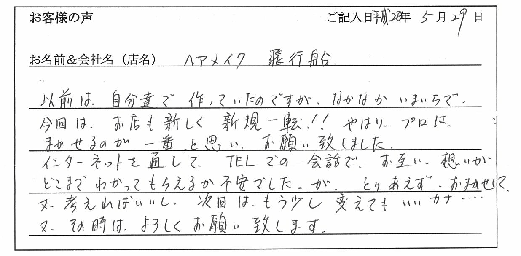 お客様の声 ご記入日 平成28年 5月29日
お名前&会社名（店名） ヘアメイク 飛行船
以前は、自分達で作っていたのですが、なかなかいまいちで、
今回は、お店も新しく新規一転!! やはり、プロに
まかせるのが一番と思い、お願い致しました。
インターネットを通して、TELでの会話で、お互い、想いが
どこまでわかってもらえるか不安でしたが、とりあえず、お任せして、
又、考えればいいし、次回は、もう少し変えてもいいかナ…
又、その時は、よろしくお願い致します。